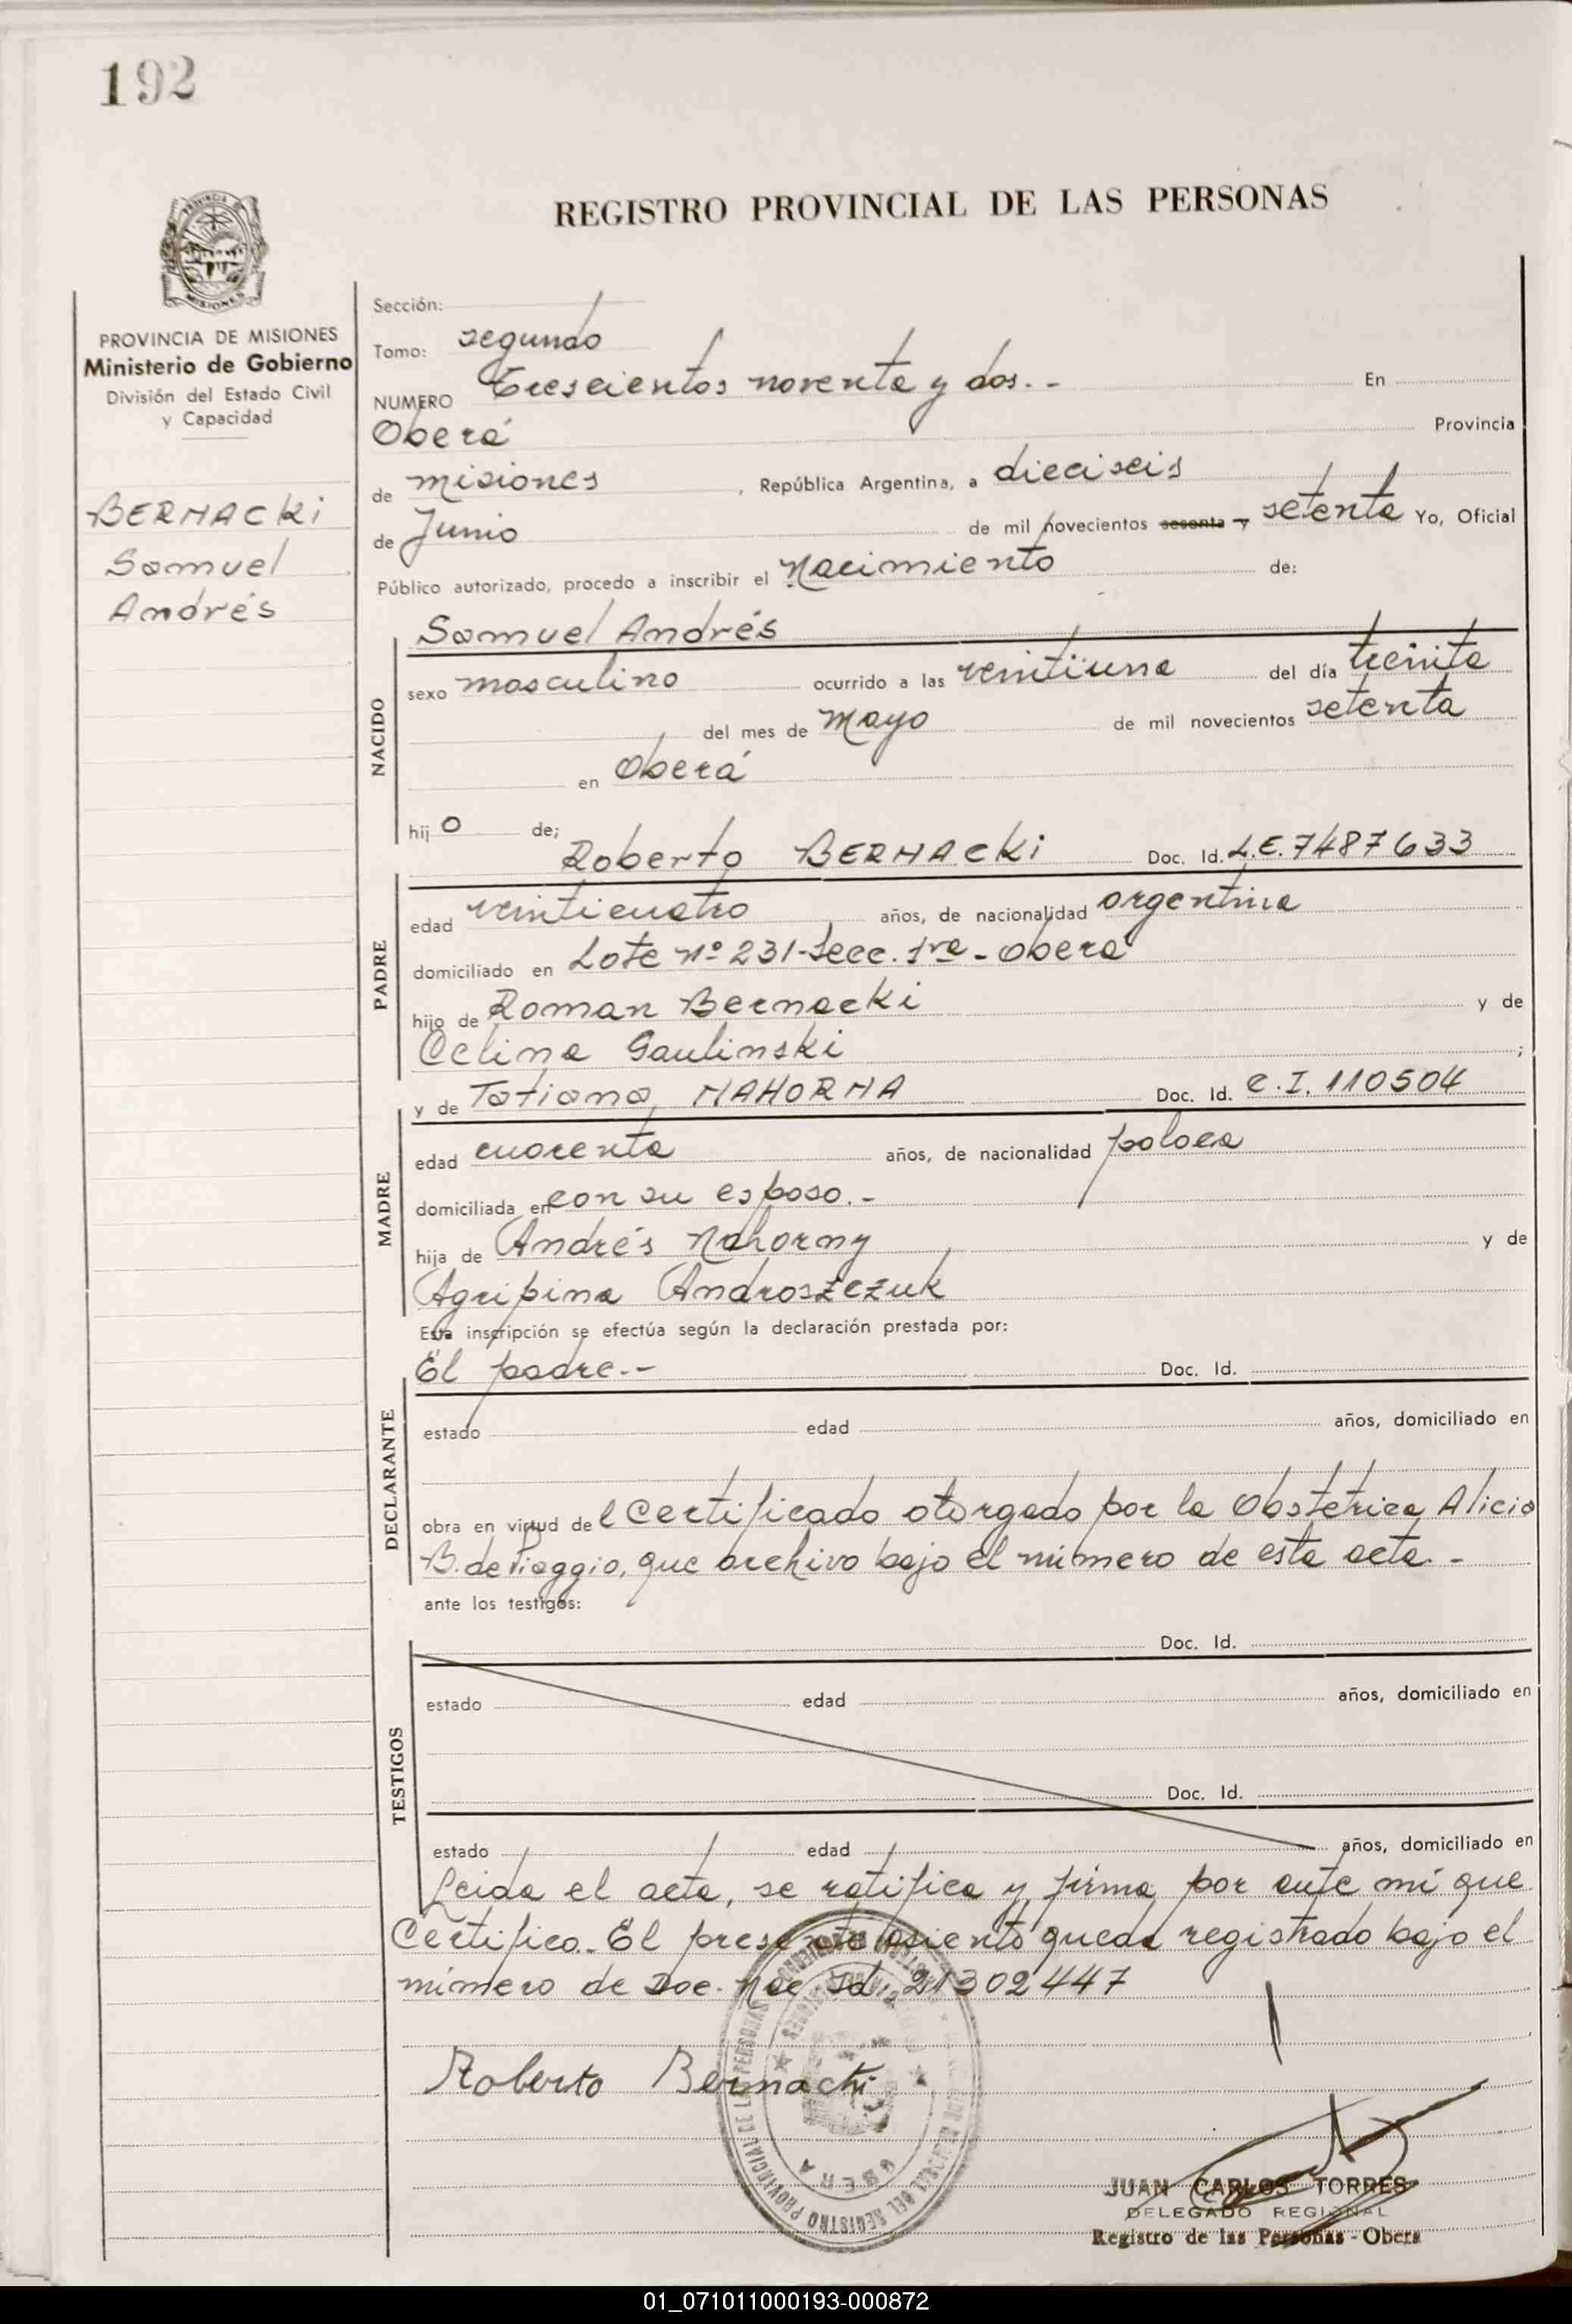 192
REGISTRO PROVINCIAL DE LAS PERSONAS
PROVINCIA DE MISIONES
Ministerio de Gobierno
División del Estado Civil
y Capacidad
BERNACKI
Samuel
Andrés
Sección:
Tomo: segundo
NUMERO Trescientos noventa y dos.- En
Oberá Provincia
de misiones, República Argentina, a dieciseis
de Junio de mil novecientos sesenta y setenta Yo, Oficial
Público autorizado, procedo a inscribir el Nacimiento de:
Samuel Andrés
NACIDO
sexo masculino ocurrido a las veintiuna del día treinta
del mes de mayo de mil novecientos setenta
en Oberá
hijo de; Roberto BERNACKI Doc. Id. L.E. 7487633
PADRE
edad veinticuatro años, de nacionalidad argentina
domiciliado en Lote Nº 231-Secc. 1ra - Oberá
hijo de Roman Bernacki y de
Celina Gaulinski ;
y de Tatiana NAHORNA Doc. Id. C.I. 110504
MADRE
edad cuarenta años, de nacionalidad polaca
domiciliada en con su esposo.-
hija de Andrés Nahorny y de
Agripina Androszczuk
Esta inscripción se efectúa según la declaración prestada por:
El padre.- Doc. Id.
DECLARANTE
estado edad años, domiciliado en
obra en virtud del Certificado otorgado por la Obstetrica Alicia
B. de Piaggio, que archivo bajo el número de esta acta.-
ante los testigos:
Doc. Id.
TESTIGOS
estado edad años, domiciliado en
Doc. Id.
estado edad años, domiciliado en
Leida el acta, se ratifica y firma por ante mi que
Certifico.- El presente asiento queda registrado bajo el
número de Doc. Nac. Id. 21302447
Roberto Bernacki
REGISTRO PROVINCIAL DE LAS PERSONAS
OBERA
JUAN CARLOS TORRES
DELEGADO REGIONAL
Registro de las Personas - Obera
01_071011000193-000872